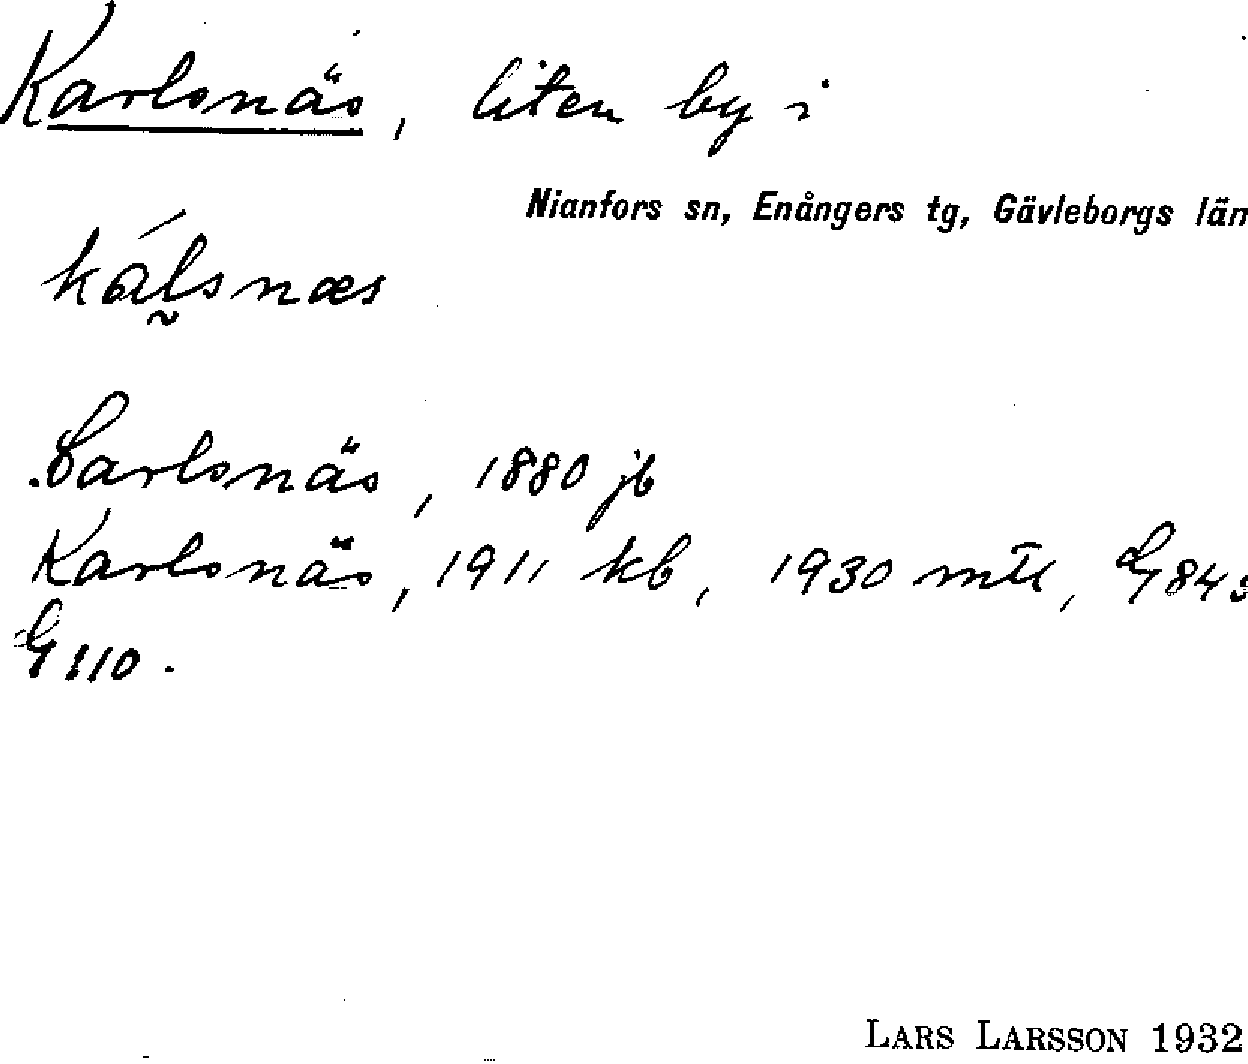 Karlsnäs, liten by i
Nianfors sn, Enångers tg, Gävleborgs län
kálsnæs
Carlsnäs, 1880 jb
Karlsnäs, 1911 kb, 1930 mtl, G 84 s
G 110.
LARS LARSSON 1932